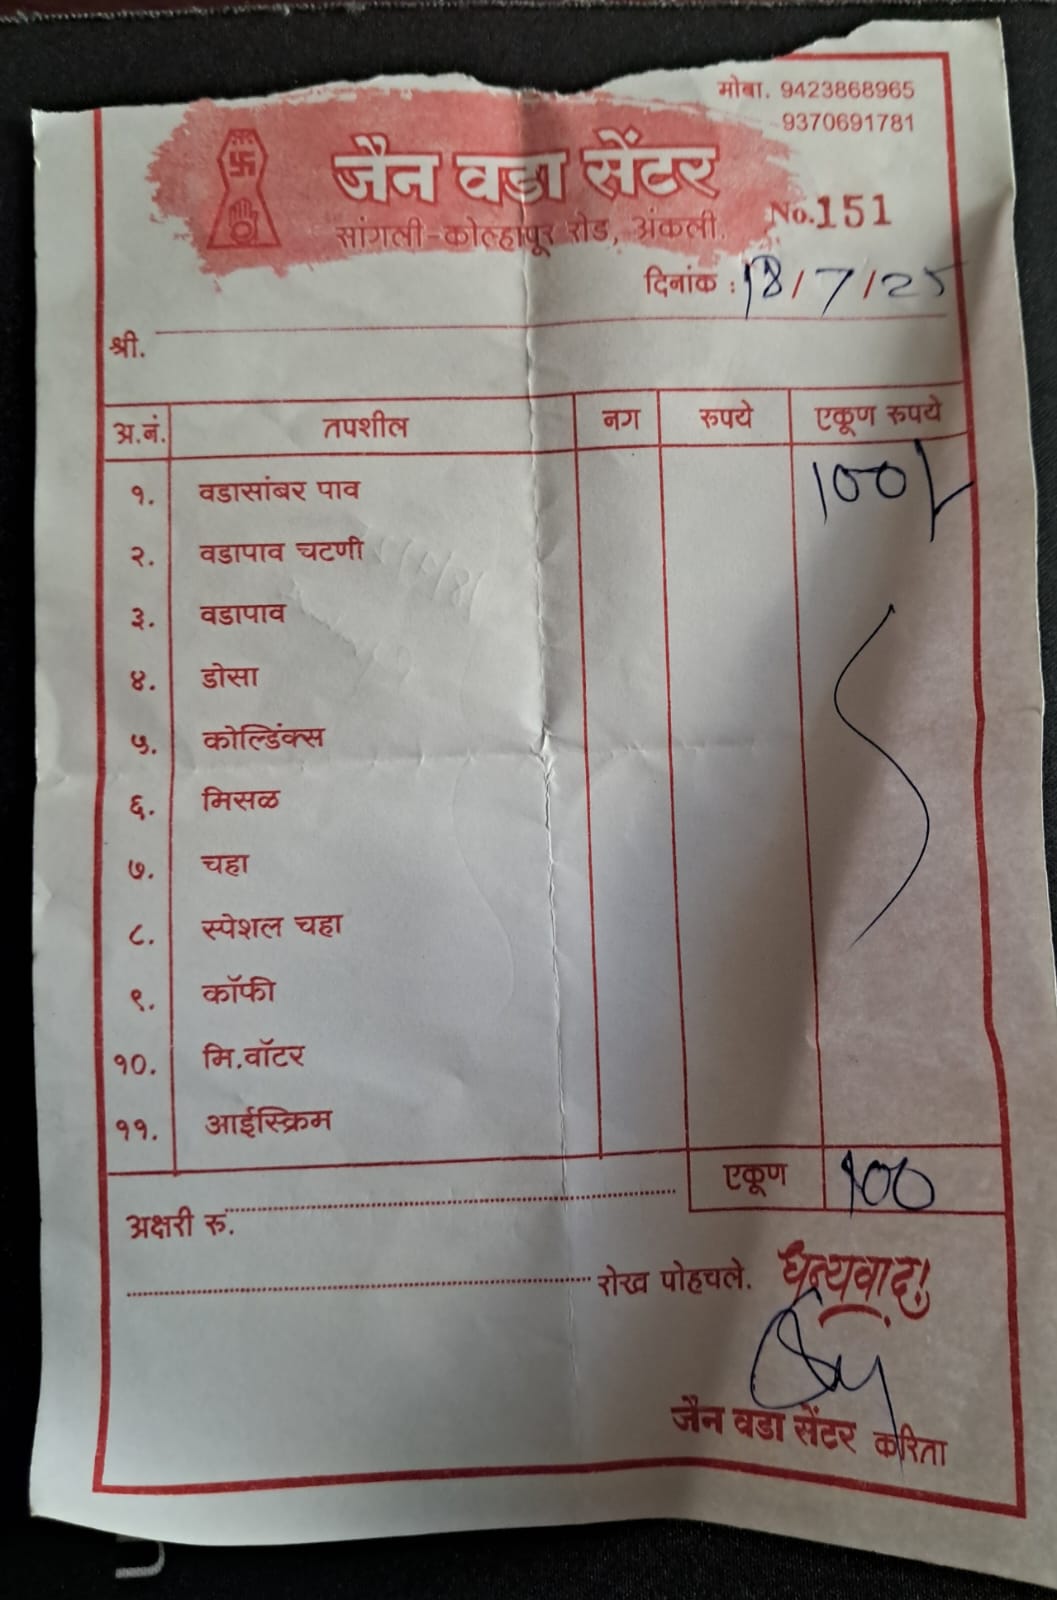 मोबा. 9423868965
9370691781
जैन वडा सेंटर
सांगली-कोल्हापूर रोड, अंकली.
No.151
दिनांक : 18/7/25
श्री.
अ.नं. तपशील नग रुपये एकूण रुपये
१. वडासांबर पाव 100/-
२. वडापाव चटणी
३. वडापाव
४. डोसा
५. कोल्डिंक्स
६. मिसळ
७. चहा
८. स्पेशल चहा
९. कॉफी
१०. मि.वॉटर
११. आईस्क्रिम
एकूण 100
अक्षरी रु.
रोख पोहचले. धन्यवाद!
जैन वडा सेंटर करिता